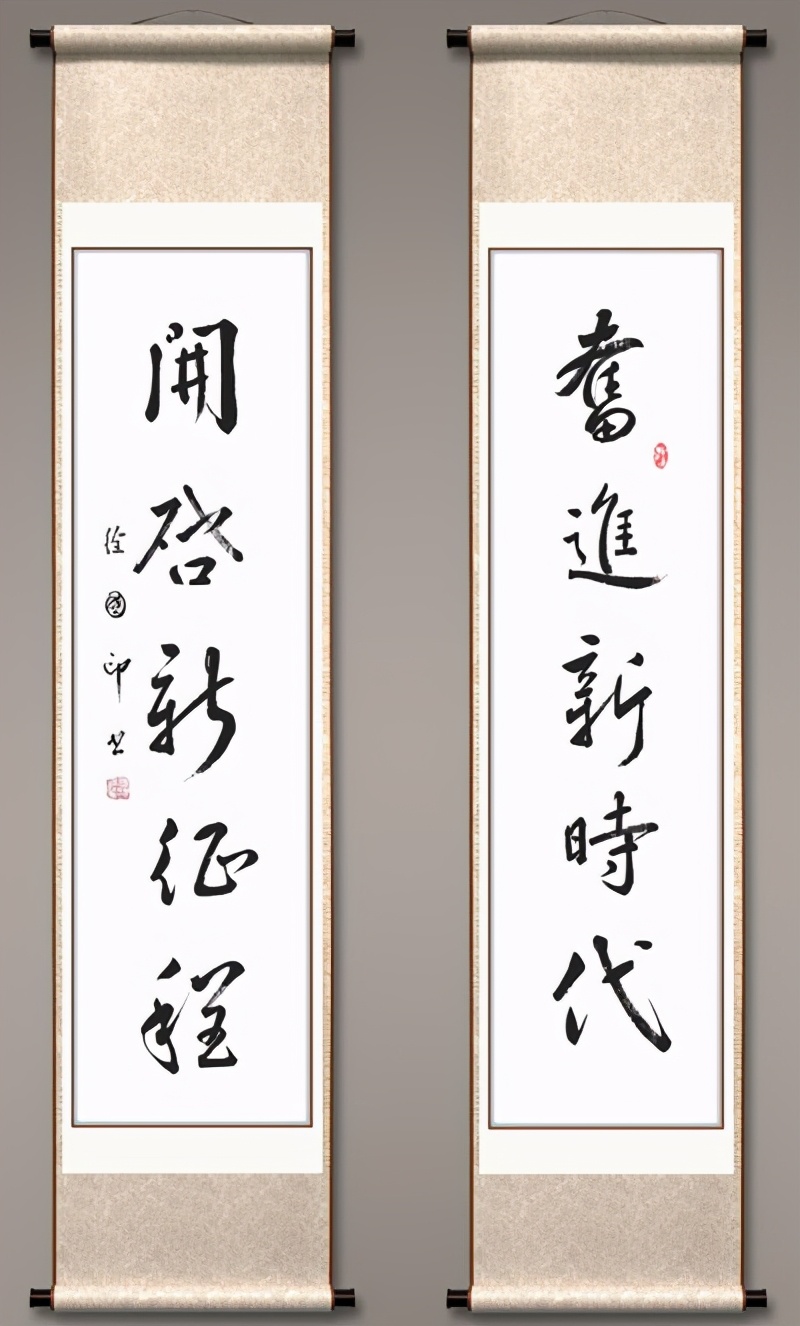 奮進新時代
開啓新征程
徐國印书